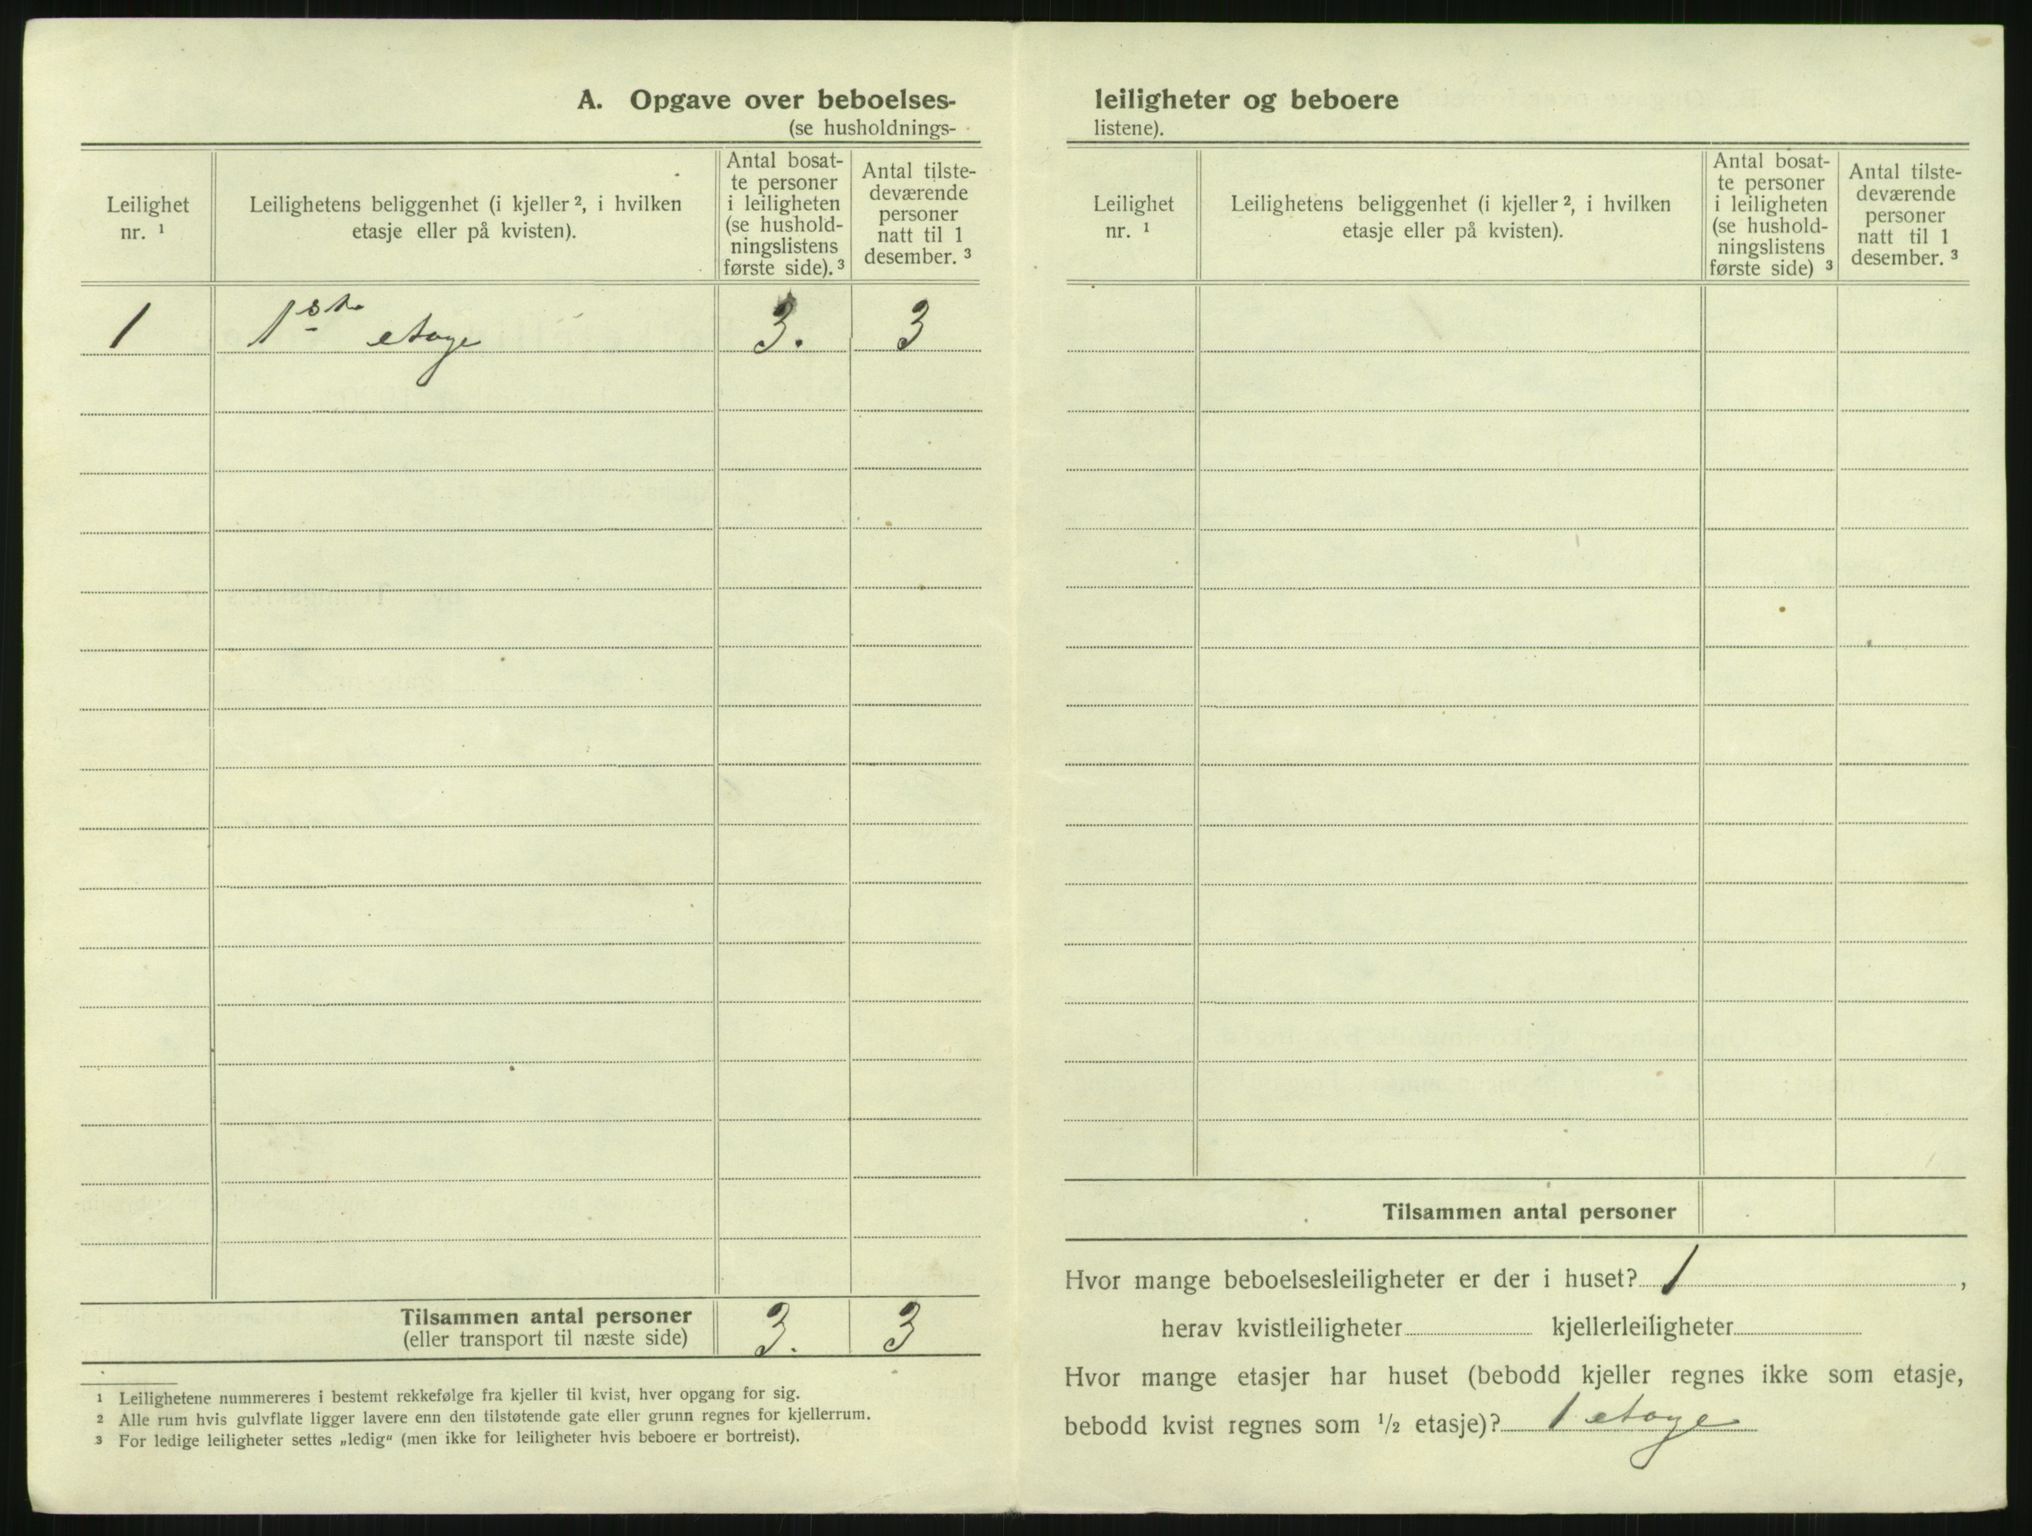 A. Opgave over beboelses-
(se husholdnings-
Leilighet
nr. ¹
Leilighetens beliggenhet (i kjeller ², i hvilken
etasje eller på kvisten).
Antal bosat-
te personer
i leiligheten
(se hushold-
ningslistens
første side). ³
Antal tilste-
deværende
personer
natt til 1
desember. ³
1 1ste etage 3. 3
Tilsammen antal personer 3. 3
(eller transport til næste side)
¹ Leilighetene nummereres i bestemt rekkefølge fra kjeller til kvist, hver opgang for sig.
² Alle rum hvis gulvflate ligger lavere enn den tilstøtende gate eller grunn regnes for kjellerrum.
³ For ledige leiligheter settes „ledig“ (men ikke for leiligheter hvis beboere er bortreist).
leiligheter og beboere
listene).
Leilighet
nr. ¹
Leilighetens beliggenhet (i kjeller ², i hvilken
etasje eller på kvisten).
Antal bosat-
te personer
i leiligheten
(se hushold-
ningslistens
første side) ³
Antal tilste-
deværende
personer
natt til 1
desember. ³
Tilsammen antal personer
Hvor mange beboelsesleiligheter er der i huset? 1 ,
herav kvistleiligheter kjellerleiligheter
Hvor mange etasjer har huset (bebodd kjeller regnes ikke som etasje,
bebodd kvist regnes som ½ etasje)? 1 etage